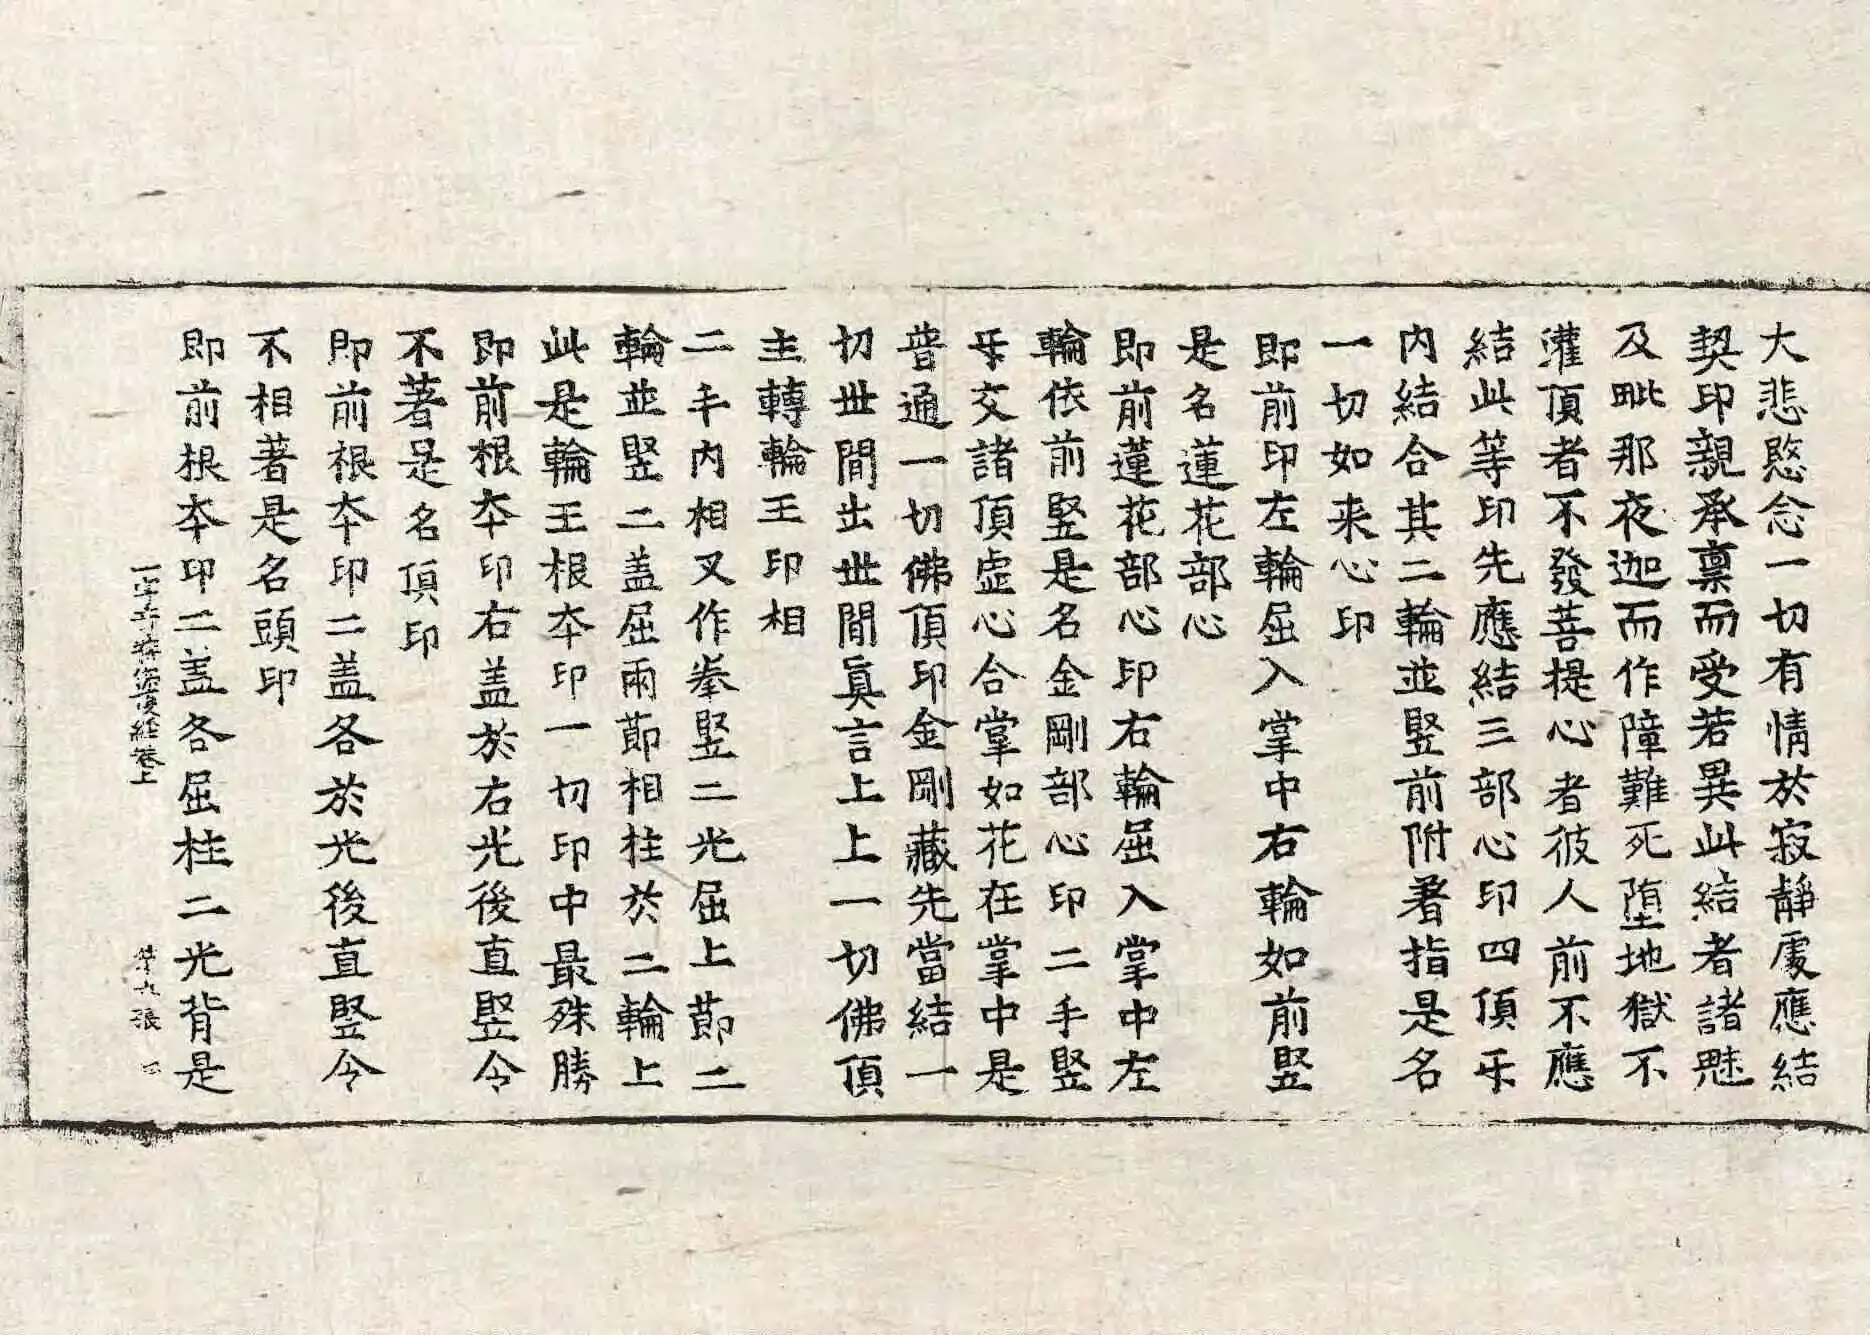 大悲愍念一切有情於寂靜處應結
契印親承稟而受若異此結者諸魅
及毗那夜迦而作障難死墮地獄不
灌頂者不發菩提心者彼人前不應
結此等印先應結三部心印四頂㸦
内結合其二輪並竪前附著指是名
一切如来心印
即前印左輪屈入掌中右輪如前竪
是名蓮花部心
即前蓮花部心印右輪屈入掌中左
輪依前竪是名金剛部心印二手竪
㸦交諸頂虛心合掌如花在掌中是
普通一切佛頂印金剛藏先當結一
切世間出世間眞言上上一切佛頂
主轉輪王印相
二手内相叉作拳竪二光屈上節二
輪並竪二盖屈兩節相柱於二輪上
此是輪王根夲印一切印中最殊勝
即前根夲印右盖於右光後直竪令
不著是名頂印
即前根夲印二盖各於光後直竪令
不相著是名頭印
即前根夲印二盖各屈柱二光背是
經卷上
第九張